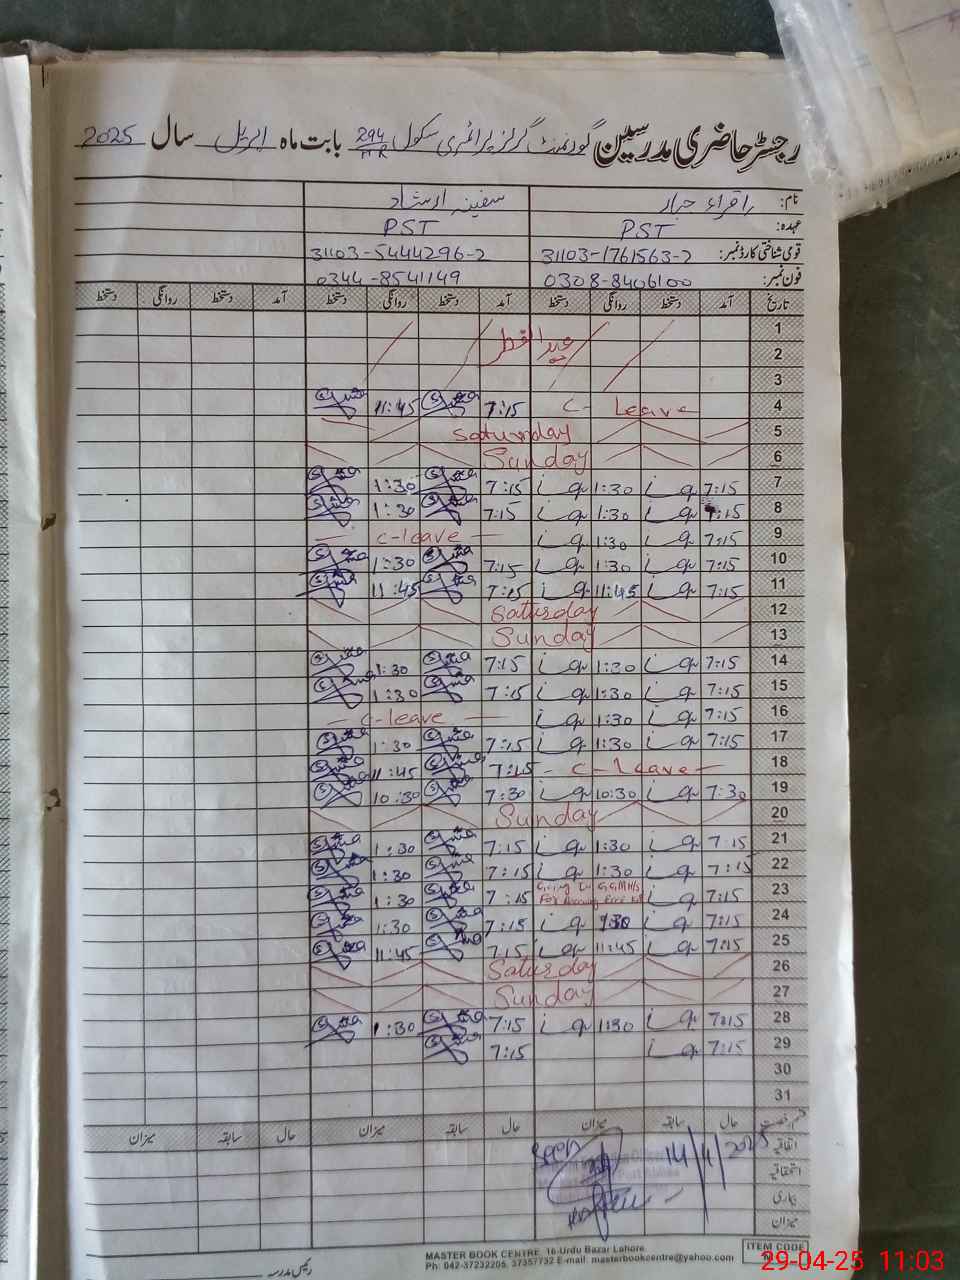 رجسٹر حاضری مدرسین گورنمنٹ گرلز پرائمری سکول 294/HR بابت ماہ اپریل سال 2025
نام: اقراء جبار سفینہ ارشاد
عہدہ: PST PST
قومی شناختی کارڈ نمبر: 31103-1761563-2 31103-5444296-2
فون نمبر: 0308-8406100 0344-8541149
تاریخ آمد دستخط روانگی دستخط آمد دستخط روانگی دستخط آمد دستخط روانگی دستخط
1 عید الفطر
2
3
4 C- Leave 7:15 11:45
5 Saturday
6 Sunday
7 7:15 1:30 7:15 1:30
8 7:15 1:30 7:15 1:30
9 7:15 1:30 - c-leave -
10 7:15 1:30 7:15 1:30
11 7:15 11:45 7:15 11:45
12 Saturday
13 Sunday
14 7:15 1:30 7:15 1:30
15 7:15 1:30 7:15 1:30
16 7:15 1:30 - c-leave -
17 7:15 1:30 7:15 1:30
18 - c-leave - 7:15 11:45
19 7:30 10:30 7:30 10:30
20 Sunday
21 7:15 1:30 7:15 1:30
22 7:15 1:30 7:15 1:30
23 7:15 Going to 7:15 1:30
24 7:15 1:30 7:15 1:30
25 7:15 11:45 7:15 11:45
26 Saturday
27 Sunday
28 7:15 1:30 7:15 1:30
29 7:15 7:15
30
31
قسم رخصت حال سابقہ میزان حال سابقہ میزان حال سابقہ میزان
اتفاقیہ
استحقاقیہ
بیماری
میزان
Seen
14/4/2025
رئیس مدرسہ
MASTER BOOK CENTRE, 16-Urdu Bazar Lahore.
Ph: 042-37232205, 37357732 E-mail: masterbookcentre@yahoo.com
ITEM CODE
29-04-25 11:03